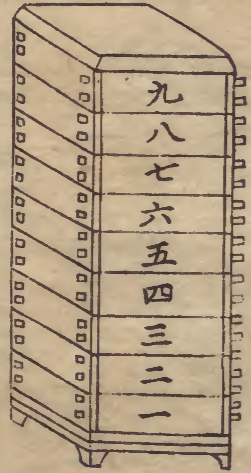 九
八
七
六
五
四
三
二
一